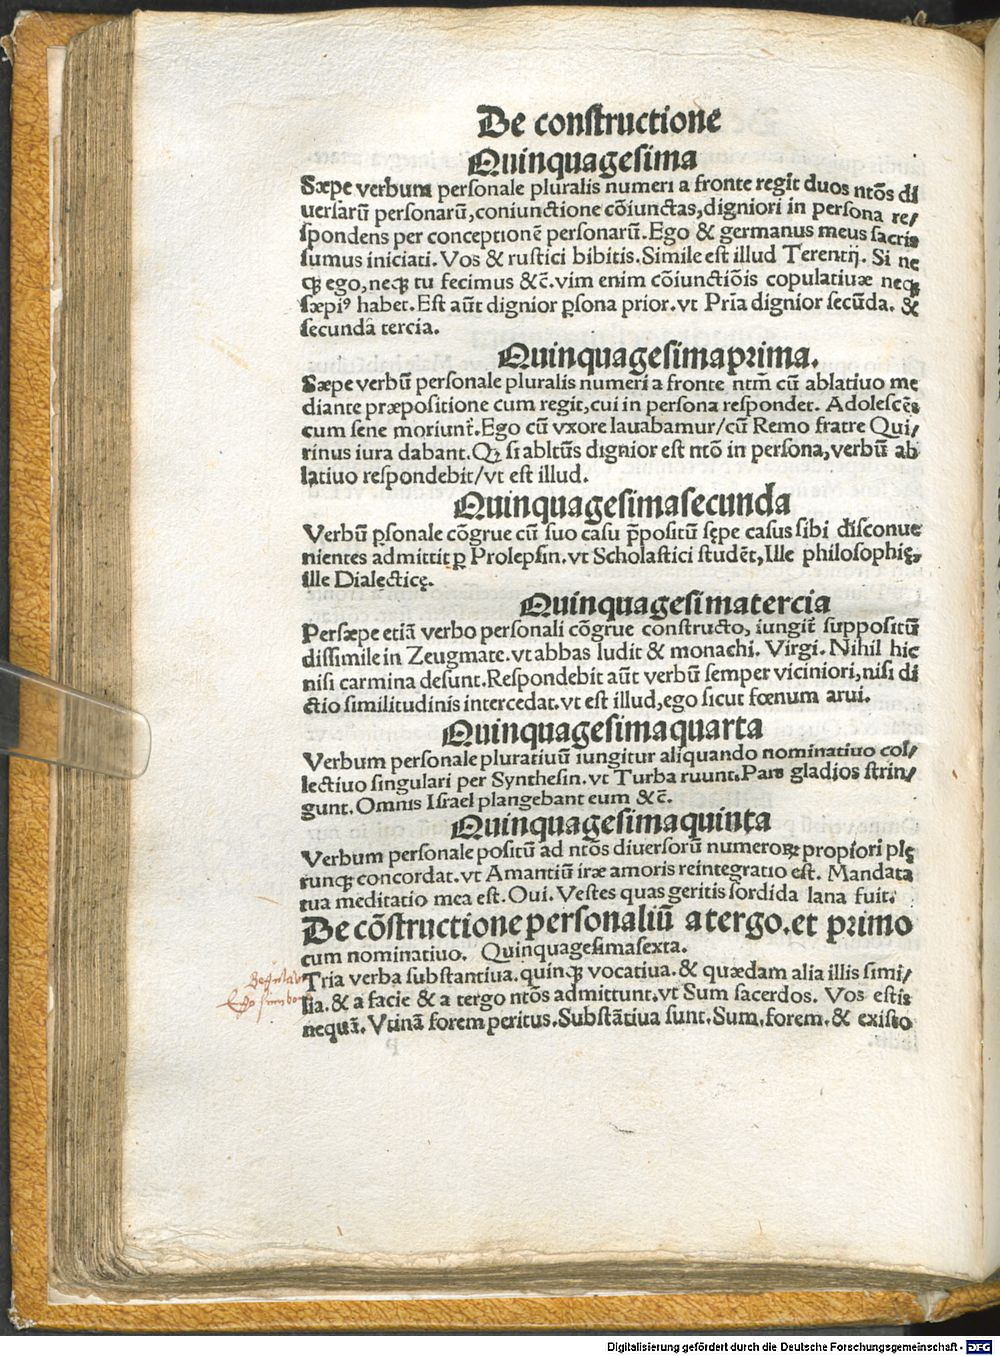 De constructione
Quinquagesima
Sæpe verbum personale pluralis numeri a fronte regit duos ntōs di
uersarū personarū,coniunctione cōiunctas,digniori in persona re/
spondens per conceptionē personarū.Ego & germanus meus sacris
sumus iniciati.Vos & rustici bibitis.Simile est illud Terentij. Si ne
qꝫ ego,neqꝫ tu fecimus &c̄.vim enim cōiunctiōis copulatiuæ neqꝫ
sæpiꝰ habet.Est aūt dignior ꝑsona prior.vt Pria dignior secūda. &
secunda tercia.
Quinquagesimaprima.
Sæpe verbū personale pluralis numeri a fronte ntm̄ cū ablatiuo me
diante præpositione cum regit,cui in persona respondet. Adolescēs
cum sene moriunt̄.Ego cū vxore lauabamur/cū Remo fratre Qui/
rinus iura dabant.Qꝫ si abltūs dignior est ntō in persona,verbū ab
latiuo respondebit/vt est illud.
Quinquagesimasecunda
Verbū ꝑsonale cōgrue cū suo casu p̄positū sępe casus sibi disconue
nientes admittit ꝑ Prolepsin.vt Scholastici studēt,Ille philosophię,
ille Dialecticę.
Quinquagesimatercia
Persæpe etiā verbo personali cōgrue constructo, iungit̄ suppositū
dissimile in Zeugmate.vt abbas ludit & monachi. Virgi. Nihil hic
nisi carmina desunt.Respondebit aūt verbū semper viciniori,nisi di
ctio similitudinis intercedat.vt est illud,ego sicut fœnum arui.
Quinquagesimaquarta
Verbum personale pluratiuū iungitur aliquando nominatiuo col/
lectiuo singulari per Synthesin.vt Turba ruunt.Pars gladios strin/
gunt.Omnis Israel plangebant eum &c̄.
Quinquagesimaquinta
Verbum personale positū ad ntōs diuersorū numeroꝝ propiori plę
runqꝫ concordat.vt Amantiū iræ amoris reintegratio est. Mandata
tua meditatio mea est.Oui.Vestes quas geritis sordida lana fuit.
De cōstructione personaliū a tergo.et primo
cum nominatiuo. Quinquagesimasexta.
Tria verba substantiua.quinqꝫ vocatiua.& quædam alia illis simi/
lia.& a facie & a tergo ntōs admittunt.vt Sum sacerdos. Vos estis
nequā.Vtinā forem peritus.Substātiua sunt.Sum.forem.& existo
Digitalisierung gefördert durch die Deutsche Forschungsgemeinschaft - DFG